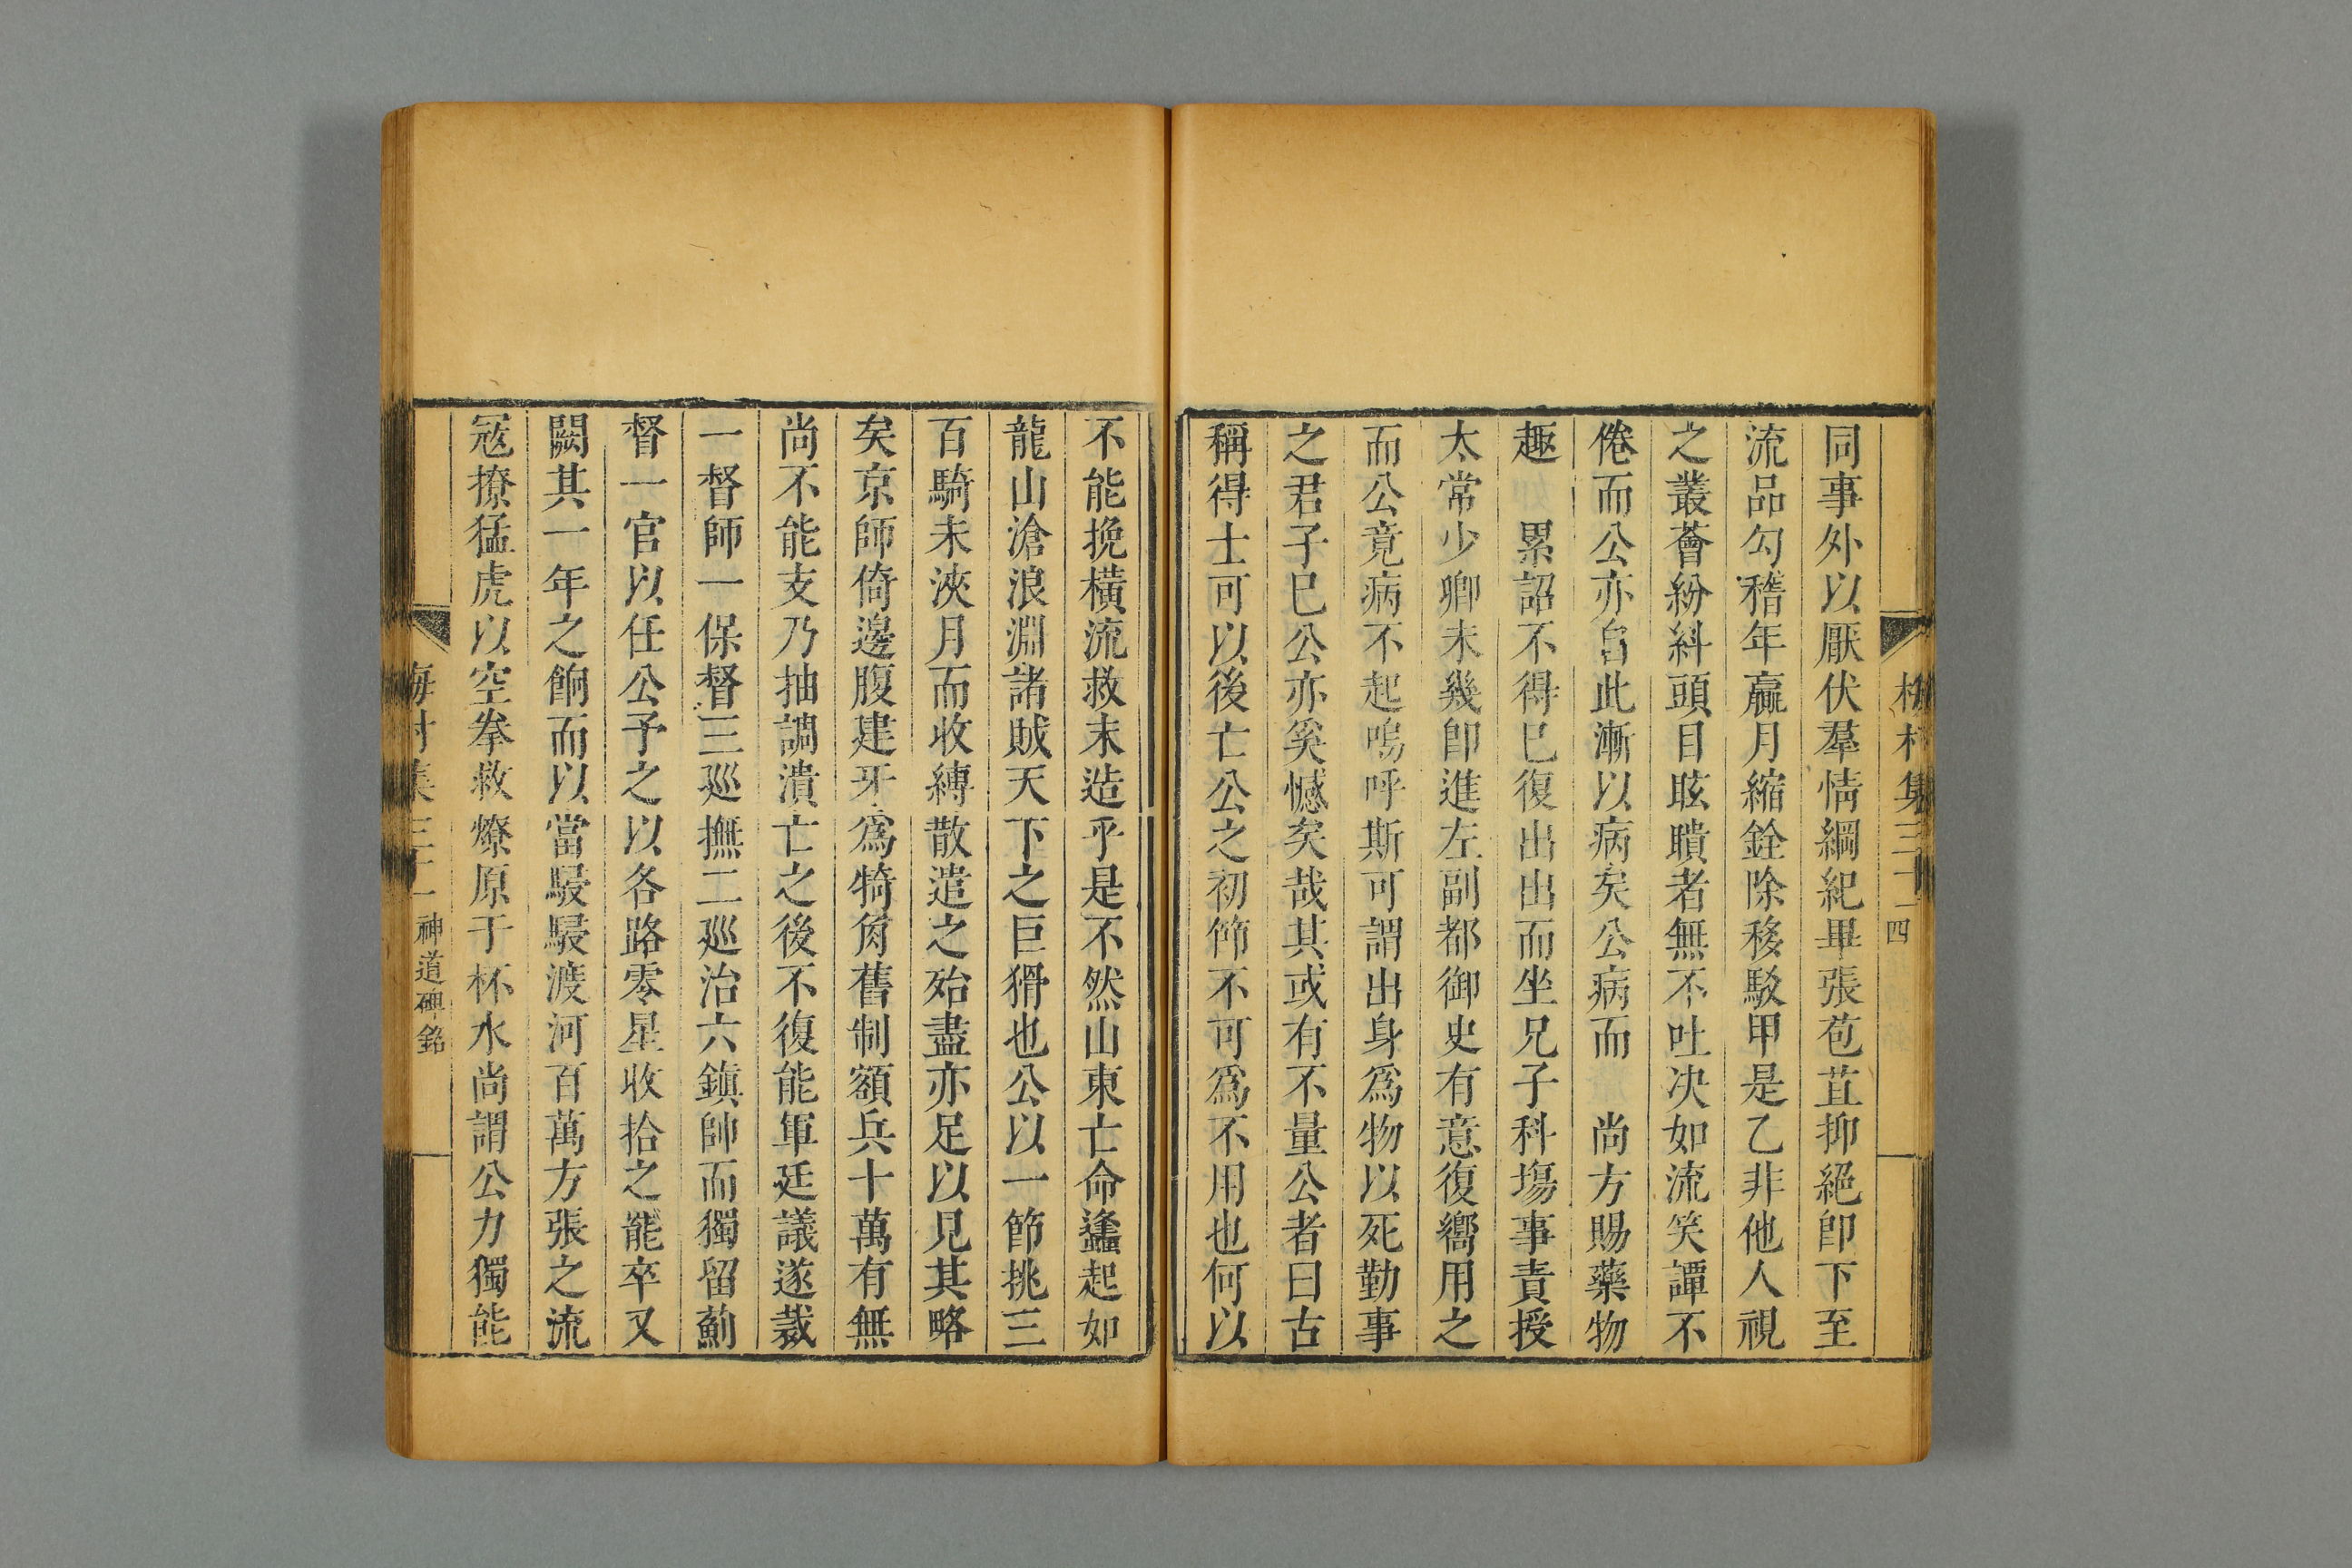 梅村集三十一 四
同事外以厭伏羣情綱紀畢張苞苴抑絕卽下至
流品勾稽年羸月縮銓除移駁甲是乙非他人視
之叢薈紛糾頭目眩瞶者無不吐决如流笑譚不
倦而公亦旨此漸以病矣公病而　尚方賜藥物
趣　累詔不得已復出出而坐兄子科塲事責授
太常少卿未幾卽進左副都御史有意復嚮用之
而公竟病不起嗚呼斯可謂出身爲物以死勤事
之君子已公亦奚憾矣哉其或有不量公者曰古
稱得士可以後亡公之初節不可爲不用也何以
不能挽橫流救末造乎是不然山東亡命蠭起如
龍山滄浪淵諸賊天下之巨猾也公以一節挑三
百騎未浹月而收縛散遣之殆盡亦足以見其略
矣京師倚邊腹建牙爲犄角舊制額兵十萬有無
尚不能支乃抽調潰亡之後不復能軍廷議遂裁
一督師一保督三廵撫二廵治六鎮帥而獨留薊
督一官以任公予之以各路零星收拾之罷卒又
闕其一年之餉而以當駸駸渡河百萬方張之流
寇撩猛虎以空拳救燎原于杯水尚謂公力獨能
梅村集三十一 神道碑銘